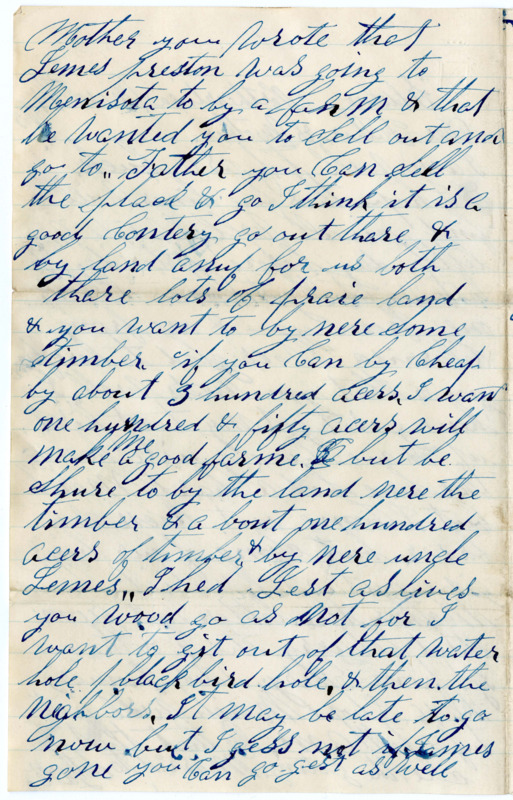 Mother you wrote that
Lemes preston was going to
Menisota to by a farm & that
he wanted you to sell out and
go to,, Father you Can sell
the plack & go I think it is a
good Contery go out thare &
by land anuf for us both
thare lots of praie land
& you want to by nere some
timber. if you Can by Cheap
by about 3 hundred acers, I want
one hundred & fifty acers will
make me a good farme. & but be
shure to by the land nere the
timber & a bout one hundred
acers of timber & by nere uncle
Lemes,, I hed Lest as lives
you wood go as not for I
want to git out of that water
hole / black bird hole, & then the
nighbors, It may be late to go
now but I gess not if Lames
gone you Can go gest as well